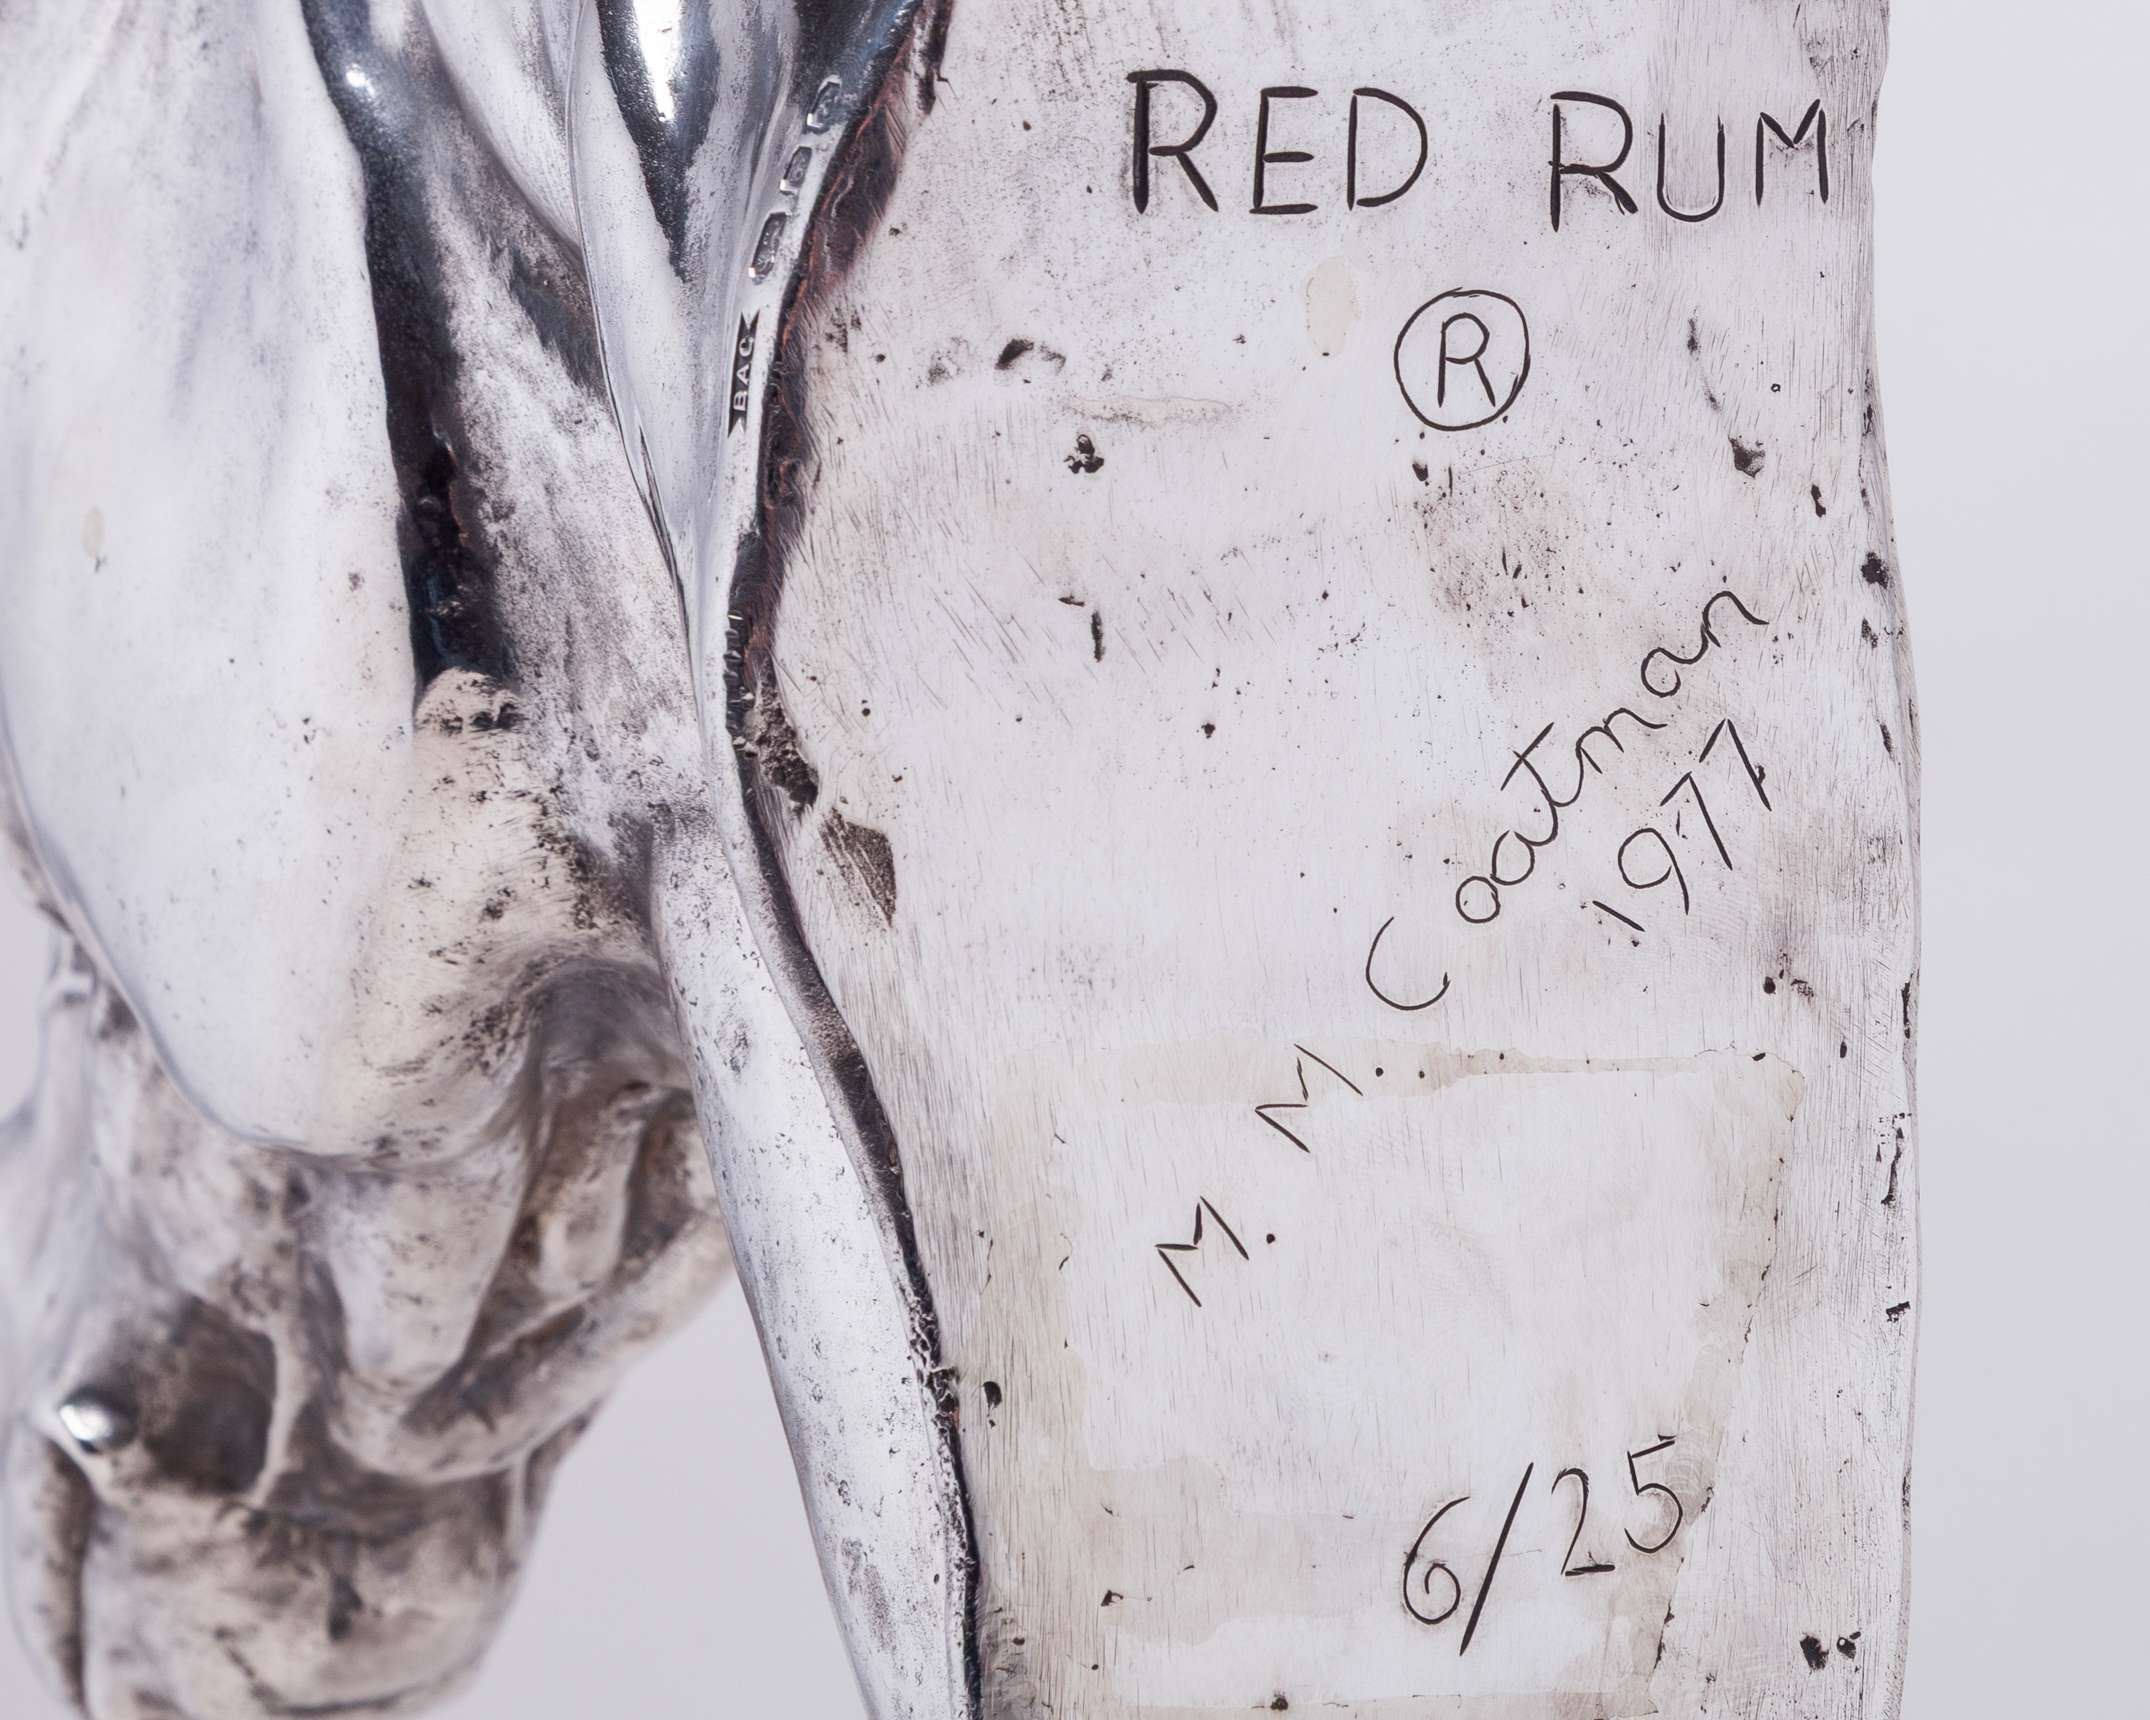 RED RUM
®
M. M. Coatman
1977
6/25
BAC